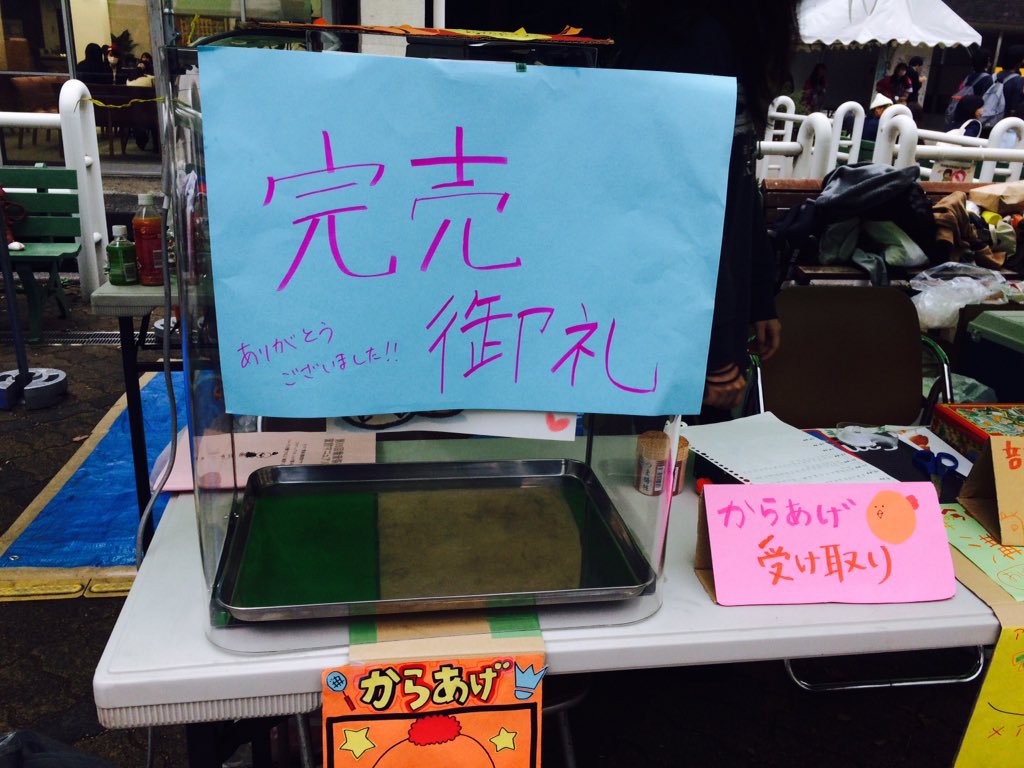 完売
御礼
ありがとう
ございました!!
からあげ
受け取り
からあげ